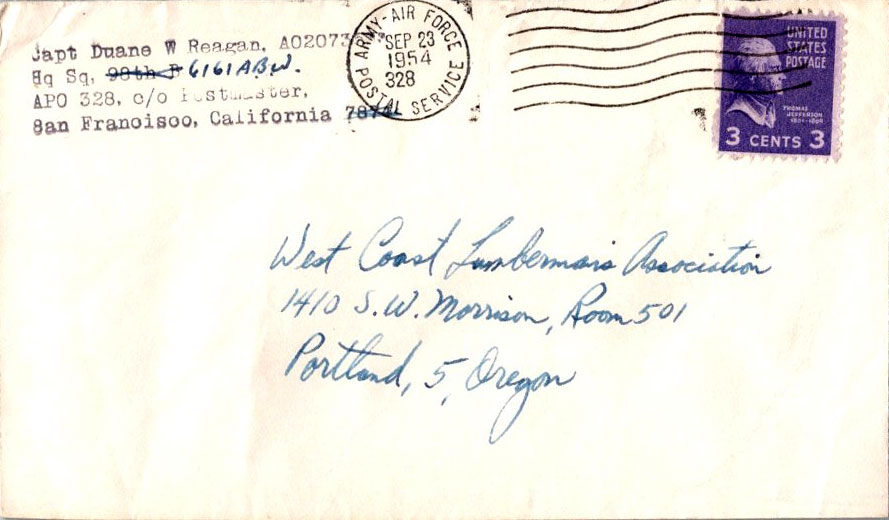 Capt Duane W Reagan, AO2073
Hq Sq, 98th B 6161 A.B.W.
APO 328, c/o Postmaster,
San Francisco, California
ARMY-AIR FORCE
SEP 23
1954
328
POSTAL SERVICE
UNITED
STATES
POSTAGE
THOMAS
JEFFERSON
1801-1809
3 CENTS 3
West Coast Lumbermans Association
1410 S.W. Morrison, Room 501
Portland, 5, Oregon